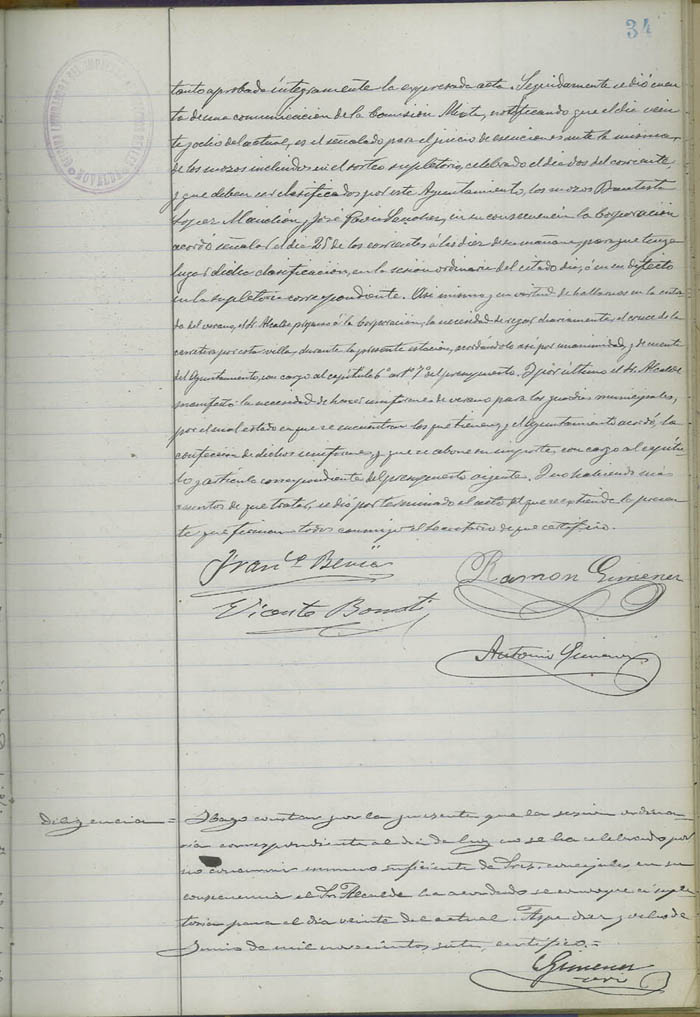 34
tanto aprobada íntegramente la expresada acta. Seguidamente se dió cuen-
ta de una comunicación de la Comisión Mixta, notificando que el día vein-
te y ocho del actual, es el señalado para el juicio de exenciones ante la misma,
de los mozos incluidos en el sorteo supletorio, celebrado el día dos del corriente,
y que deben ser clasificados por este Ayuntamiento, los mozos Bautista
López y José en su consecuencia la Corporación
acordó señalar el día 25 de los corrientes á las diez de su mañana para que tenga
lugar dicha clasificación, en la sesión ordinaria del citado día, ó en su defecto
en la supletoria correspondiente. Así mismo y en virtud de hallarnos en la entra-
da del verano, el Sr. Alcalde propuso á la Corporación, la necesidad de regar diariamente, el cruce de la
carretera por esta villa, durante la presente estación, acordándolo así por unanimidad, y de cuenta
del Ayuntamiento, con cargo al capítulo 6º artº 1º del presupuesto. Y por último el Sr. Alcalde
manifestó la necesidad de hacer uniformes de verano para los guardias municipales,
por el mal estado en que se encuentran los que tienen, y el Ayuntamiento acordó, la
confección de dichos uniformes, y que se abone su importe, con cargo al capítu-
lo y artículo correspondiente del presupuesto vigente. Y no habiendo más
asuntos de que tratar, se dió por terminado el acto del que se extiende la presen-
te que firman todos conmigo el Secretario de que certifico.
Franco Beviá
Ramon Gimenez
Vicente Bonmatí
Antonio Gimenez
Diligencia =
Hago constar por la presente que la sesión ordina-
ria correspondiente al día de hoy no se ha celebrado por
no concurrir número suficiente de Sres. concejales en su
consecuencia el Sr. Alcalde ha acordado se convoque á suple-
toria para el día veinte del actual. Aspe diez y ocho de
Junio de mil novecientos siete, certifico. =
Gimenez